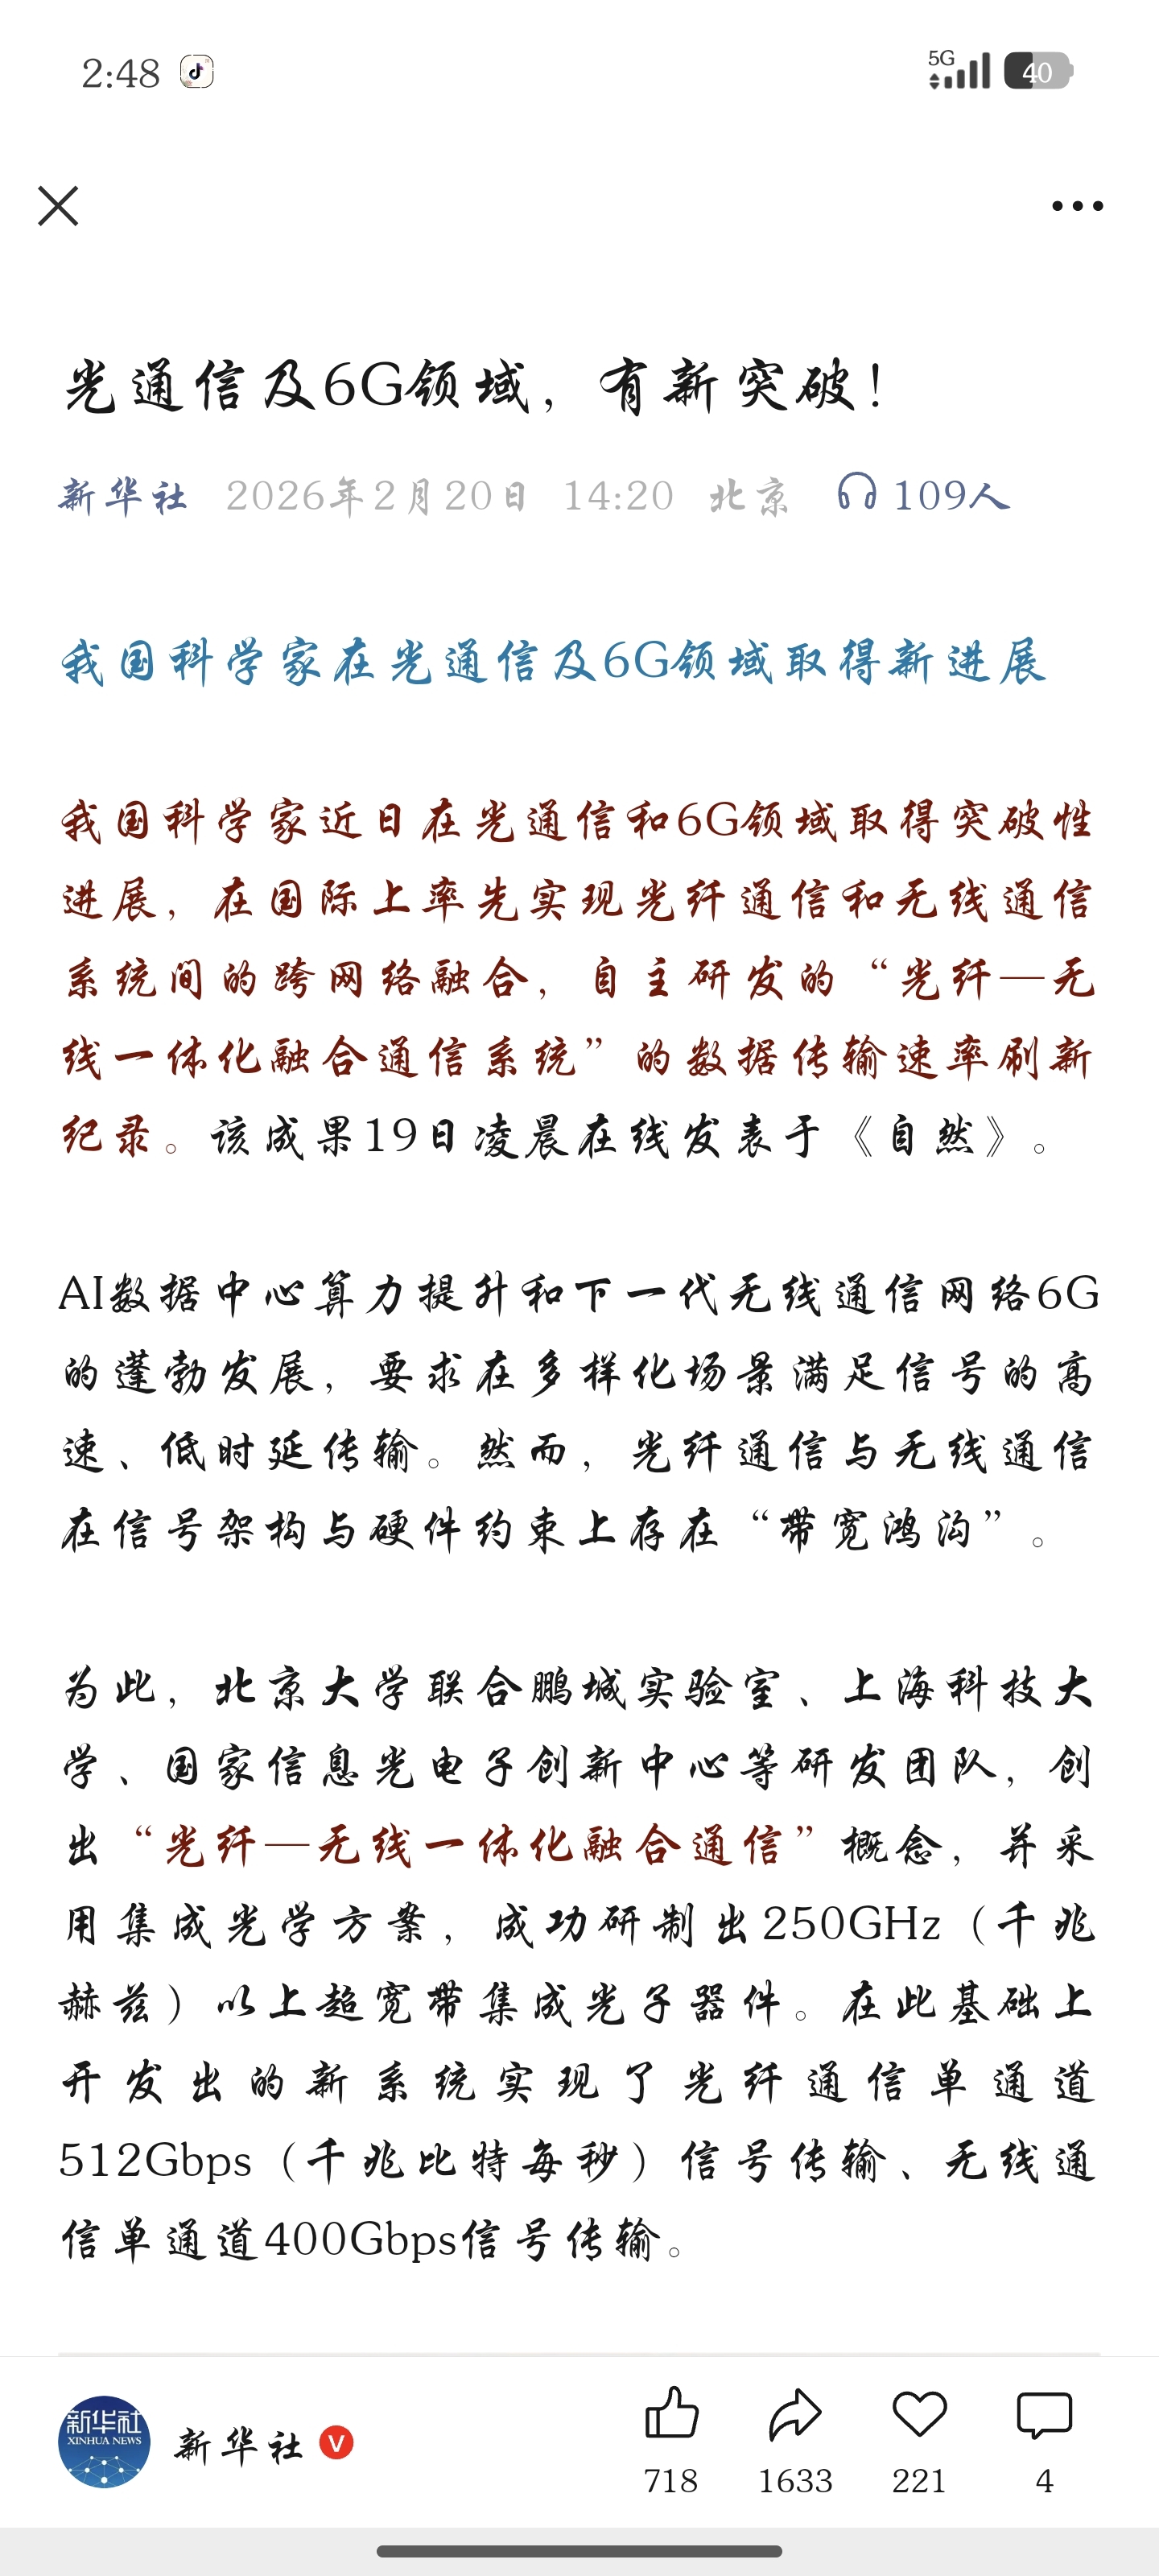 2:48
5G
40
光通信及6G领域，有新突破！
新华社 2026年2月20日 14:20 北京 109人
我国科学家在光通信及6G领域取得新进展
我国科学家近日在光通信和6G领域取得突破性
进展，在国际上率先实现光纤通信和无线通信
系统间的跨网络融合，自主研发的“光纤—无
线一体化融合通信系统”的数据传输速率刷新
纪录。该成果19日凌晨在线发表于《自然》。
AI数据中心算力提升和下一代无线通信网络6G
的蓬勃发展，要求在多样化场景满足信号的高
速、低时延传输。然而，光纤通信与无线通信
在信号架构与硬件约束上存在“带宽鸿沟”。
为此，北京大学联合鹏城实验室、上海科技大
学、国家信息光电子创新中心等研发团队，创
出“光纤—无线一体化融合通信”概念，并采
用集成光学方案，成功研制出250GHz（千兆
赫兹）以上超宽带集成光子器件。在此基础上
开发出的新系统实现了光纤通信单通道
512Gbps（千兆比特每秒）信号传输、无线通
信单通道400Gbps信号传输。
新华社
XINHUA NEWS
新华社 V
718 1633 221 4